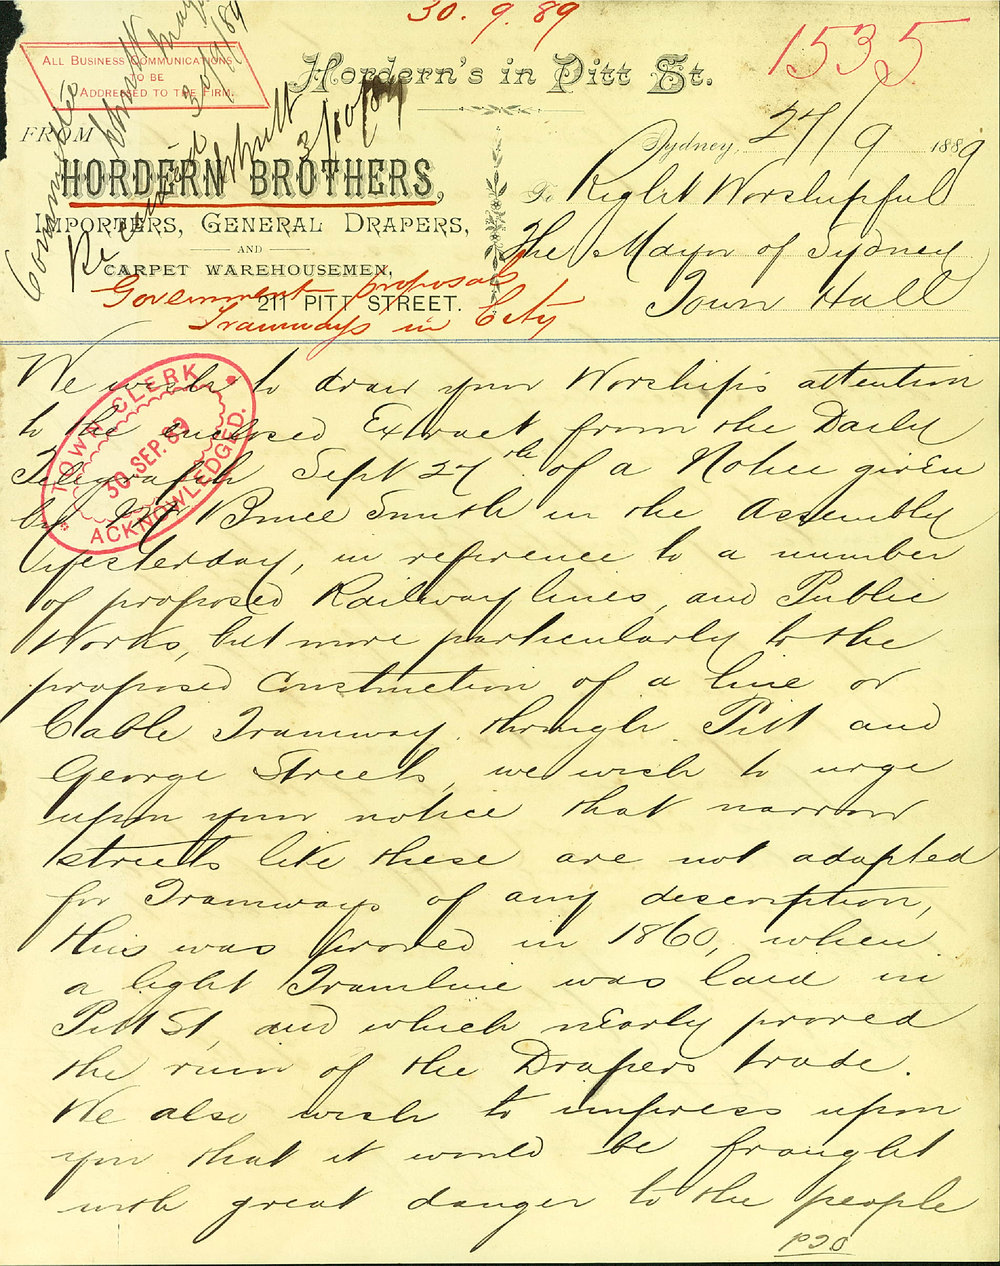 30. 9. 89
1535
ALL BUSINESS COMMUNICATIONS
TO BE
ADDRESSED TO THE FIRM.
Hordern's in Pitt St.
FROM
HORDERN BROTHERS,
IMPORTERS, GENERAL DRAPERS,
AND
CARPET WAREHOUSEMEN,
211 PITT STREET.
Sydney, 27/9 1889
To Right Worshipful
The Mayor of Sydney
Town Hall
Committee
Received
30/9/89
3/10/89
Government proposals
Tramways in City
TOWN CLERK
30 SEP. 89
ACKNOWLEDGED.
We wish to draw your Worship's attention
to the enclosed Extract from the Daily
Telegraph Sept 27th of a Notice given
by Mr Bruce Smith in the Assembly
yesterday, in reference to a number
of proposed Railway lines, and Public
Works, but more particularly to the
proposed Construction of a line or
Cable Tramway through Pitt and
George Streets, we wish to urge
upon your notice that narrow
streets like these are not adapted
for Tramways of any description,
this was proved in 1860, when
a light Tramline was laid in
Pitt St, and which nearly proved
the ruin of the Drapers trade.
We also wish to impress upon
you that it would be fraught
with great danger to the people